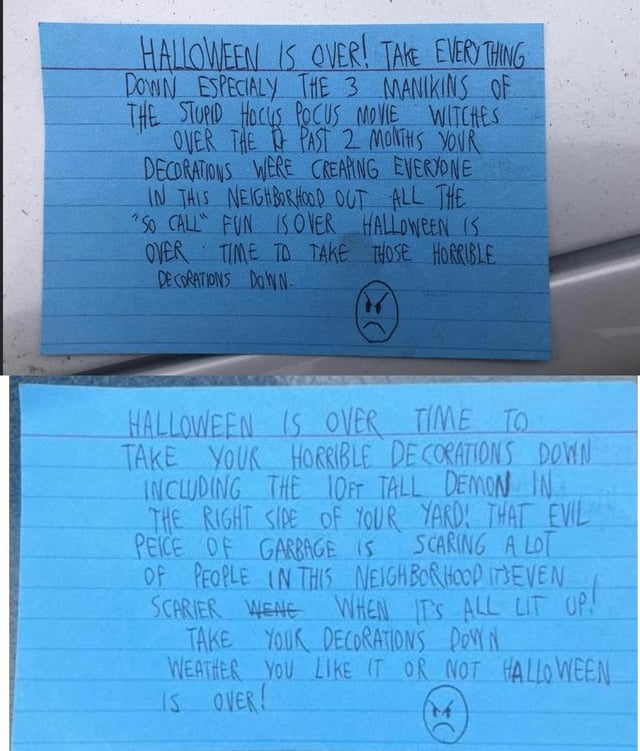 HALLOWEEN IS OVER! TAKE EVERY THING
DOWN ESPECIALY THE 3 MANIKINS OF
THE STUPID HOCUS POCUS MOVIE WITCHES
OVER THE PAST 2 MONTHS YOUR
DECORATIONS WERE CREAPING EVERYONE
IN THIS NEIGHBORHOOD OUT ALL THE
"SO CALL" FUN IS OVER HALLOWEEN IS
OVER TIME TO TAKE THOSE HORRIBLE
DECORATIONS DOWN.
HALLOWEEN IS OVER TIME TO
TAKE YOUR HORRIBLE DECORATIONS DOWN
INCLUDING THE 10FT TALL DEMON IN
THE RIGHT SIDE OF YOUR YARD! THAT EVIL
PEICE OF GARBAGE IS SCARING A LOT
OF PEOPLE IN THIS NEIGHBORHOOD IT'S EVEN
SCARIER WENE WHEN IT'S ALL LIT UP!
TAKE YOUR DECORATIONS DOWN
WEATHER YOU LIKE IT OR NOT HALLOWEEN
IS OVER!